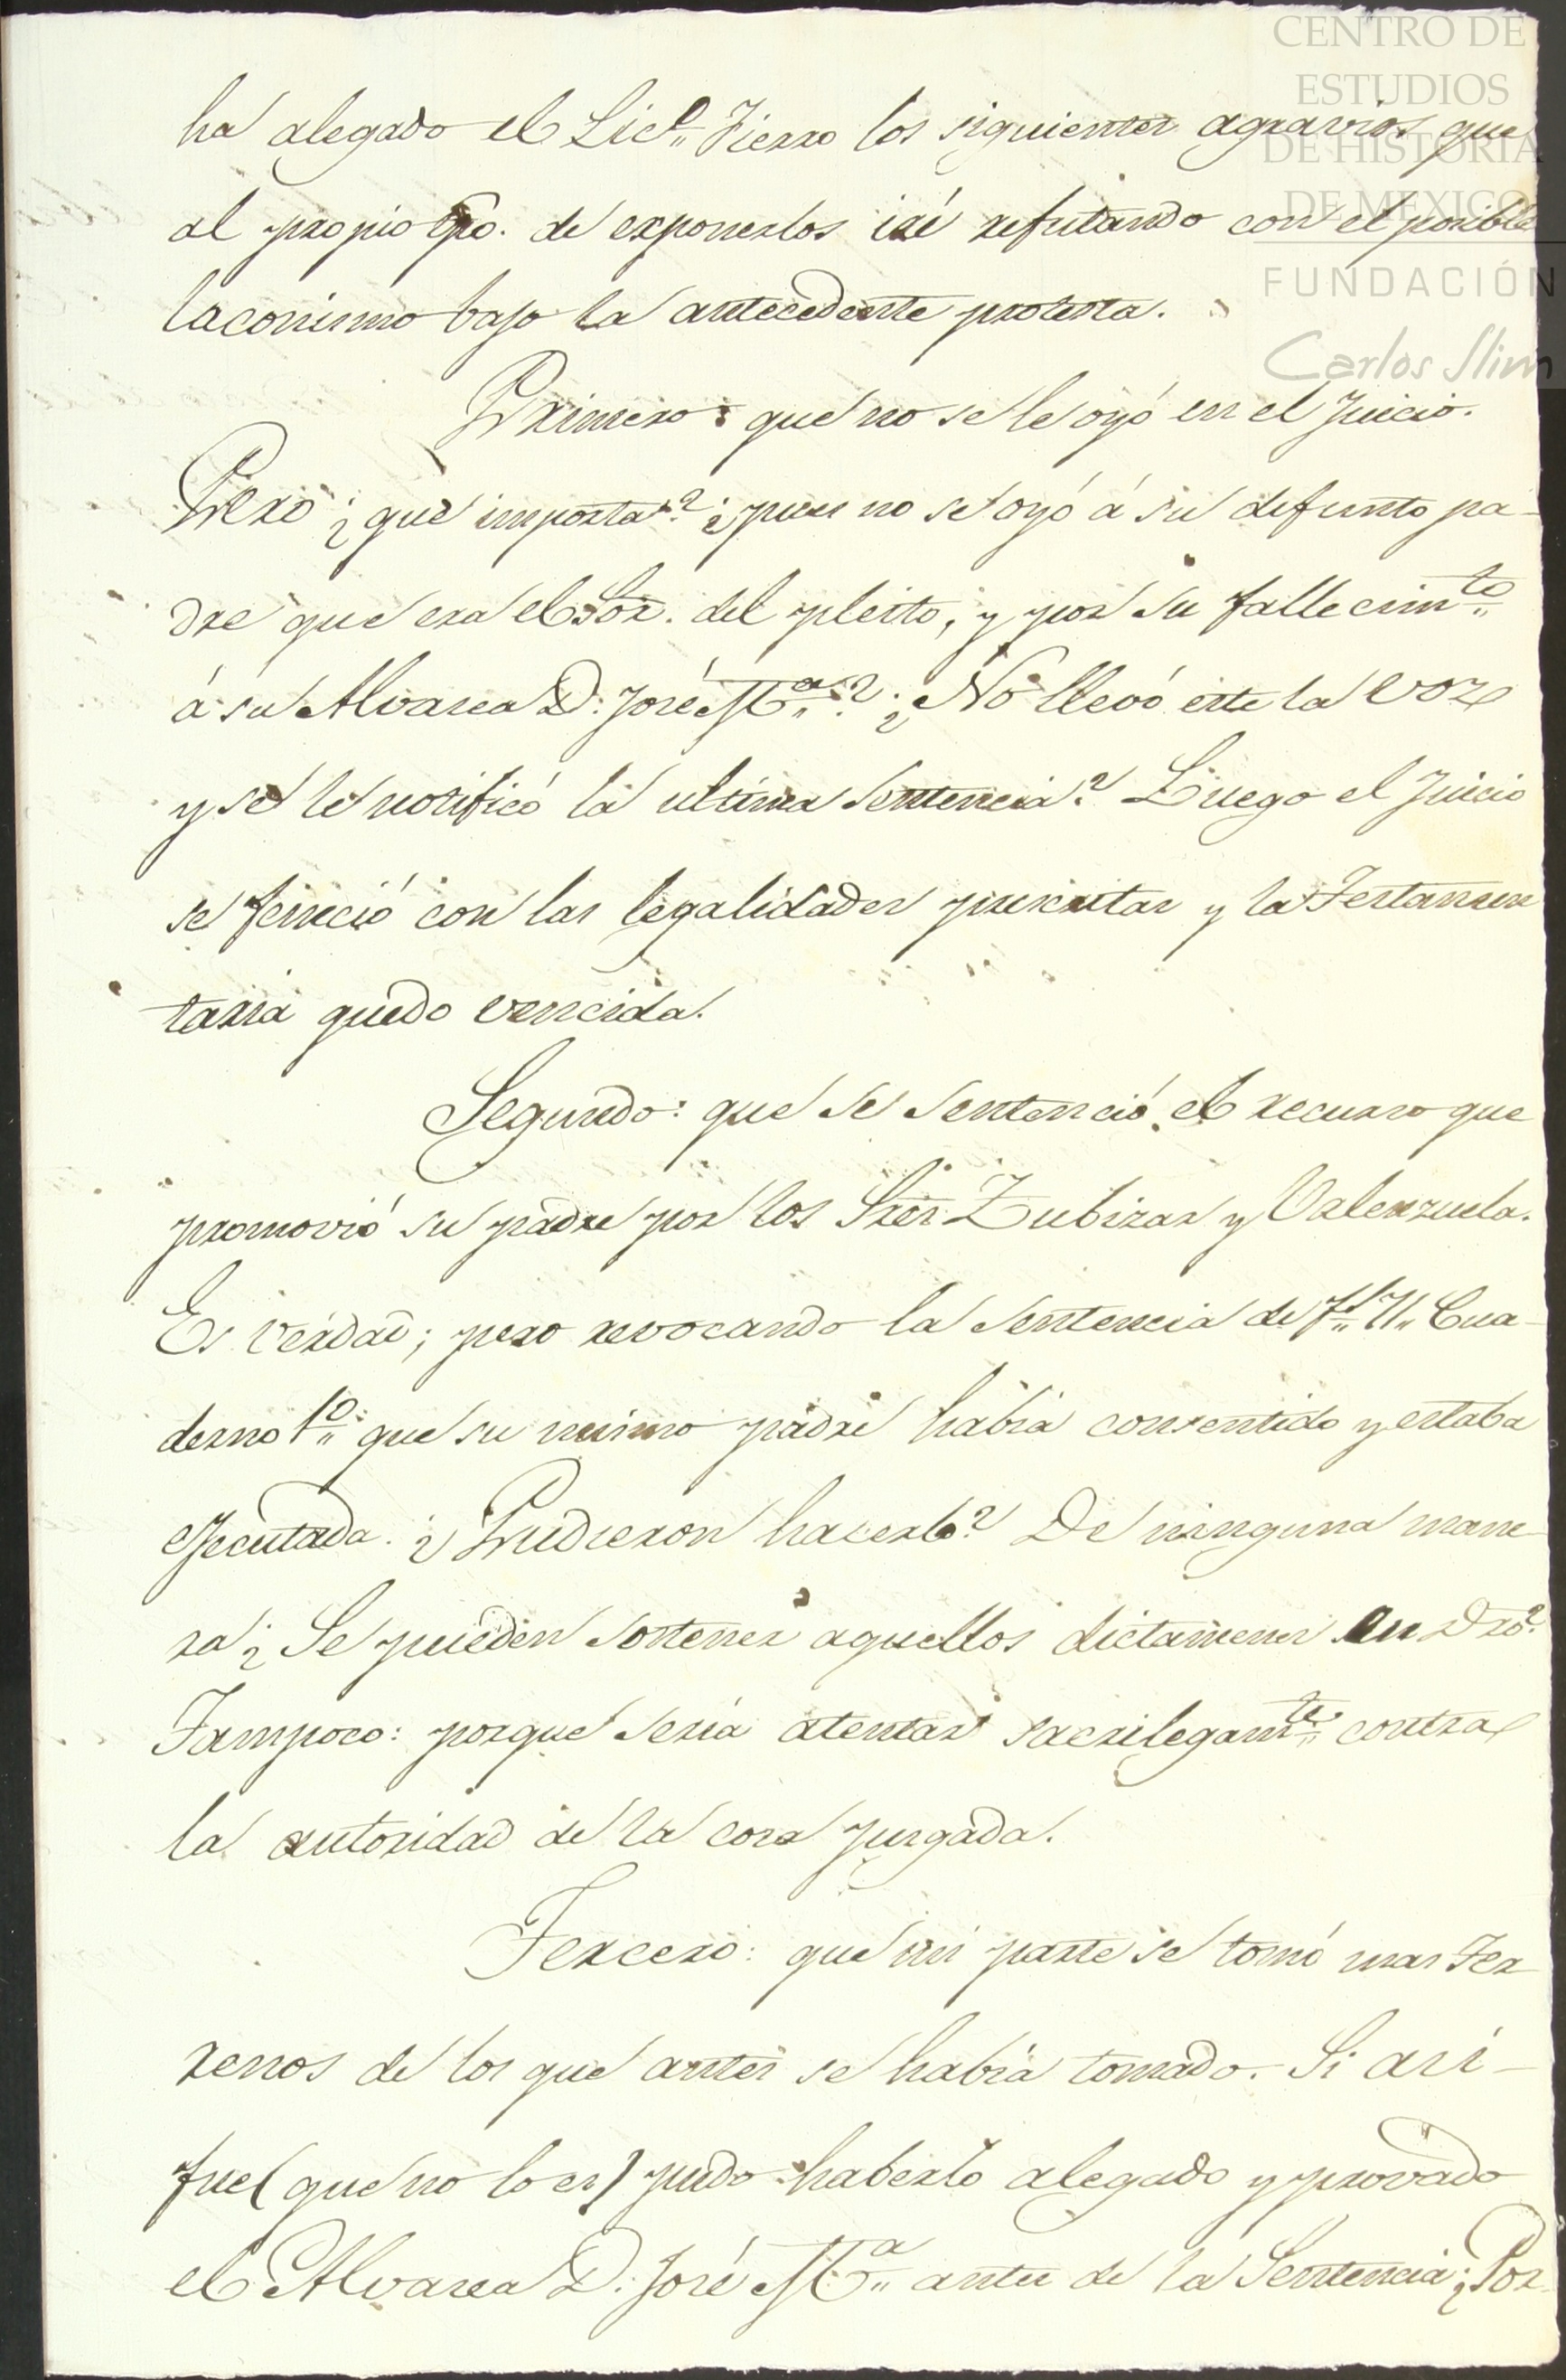 CENTRO DE
ESTUDIOS
DE HISTORIA
DE MEXICO
FUNDACIÓN
Carlos Slim
ha alegado el Licdo. Fierro los siguientes agravios, que
al propio tpo. de exponerlos iré refutando con el posible
laconismo bajo la antecedente protesta.
Primero: que no se le oyó en el Juicio.
Pero ¿que importa? ¿pues no se oyó á su defunto pa-
dre que era el Sor. del pleito, y por su fallecimto.
á su Alvacea D. José Ma.? ¿No llevó este la voz
y se le notificó la ultima Sentencia? Luego el Juicio
se feneció con las legalidades precisas y la Testamen
taria quedo vencida.
Segundo: que se sentenció el recurso que
promovió su padre por los Sres. Zubizar y Valenzuela.
Es verdad; pero revocando la Sentencia de f. 71. Cua-
derno 1o. que su mismo padre habia consentido y estaba
ejecutada. ¿Pudieron hacerlo? De ninguna mane-
ra ¿Se pueden sostener aquellos dictamenes en Dro?
Tampoco: porque seria atentar sacrilegamte. contra
la autoridad de la cosa juzgada.
Tercero: que mi parte se tomó mas Ter
renos de los que antes se habia tomado. Si asi-
fue (que no lo es) pudo haberlo alegado y provado
el Alvacea D. José Ma. antes de la Sentencia; ¿Por